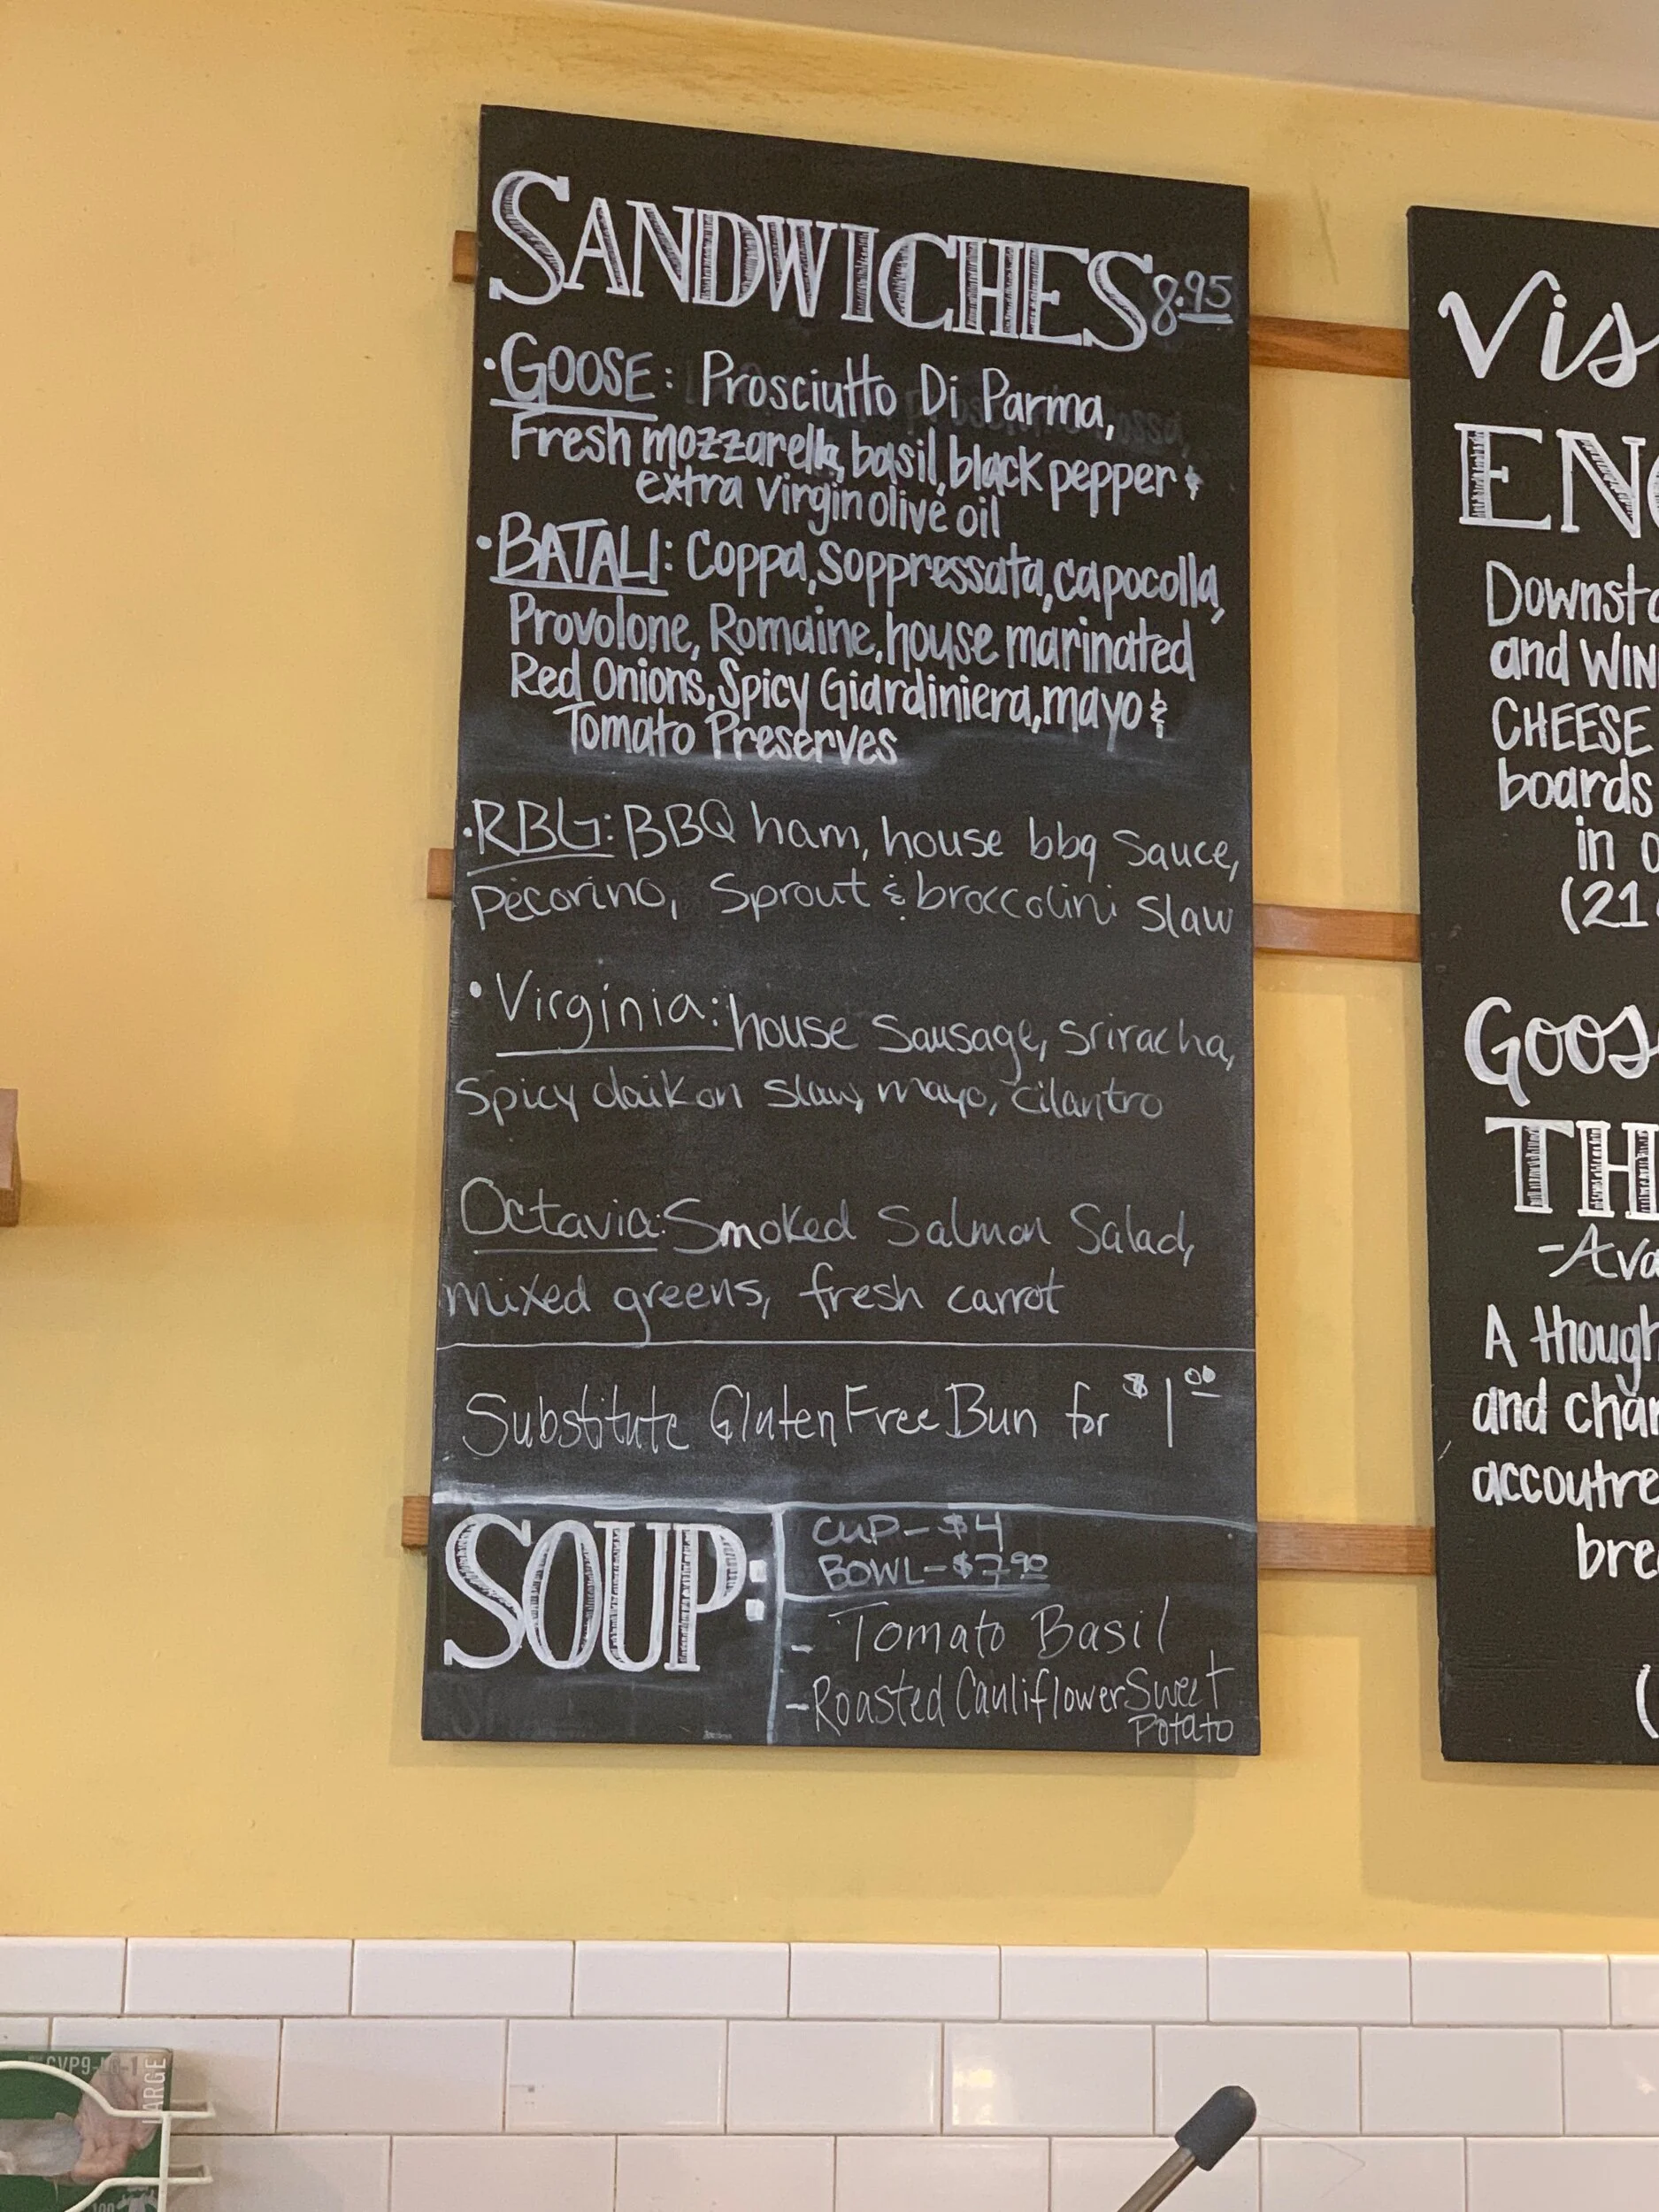 SANDWICHES 8.95
• GOOSE: Prosciutto Di Parma,
Fresh mozzarella, basil, black pepper &
extra virgin olive oil
• BATALI: Coppa, Soppressata, capocolla,
Provolone, Romaine, house marinated
Red Onions, Spicy Giardiniera, mayo &
Tomato Preserves
• RBG: BBQ ham, house bbq Sauce,
Pecorino, Sprout & broccolini Slaw
• Virginia: house Sausage, Sriracha,
Spicy daikon Slaw, mayo, cilantro
Octavia: Smoked Salmon Salad,
mixed greens, fresh carrot
Substitute Gluten Free Bun for $1.00
SOUP:
CUP - $4
BOWL - $7.90
- Tomato Basil
- Roasted Cauliflower Sweet
Potato
Vis
EN
Downst
and WIN
CHEESE
boards
in o
(21
Goos
TH
-Ava
A though
and char
accoutre
bre
(
LARGE
100